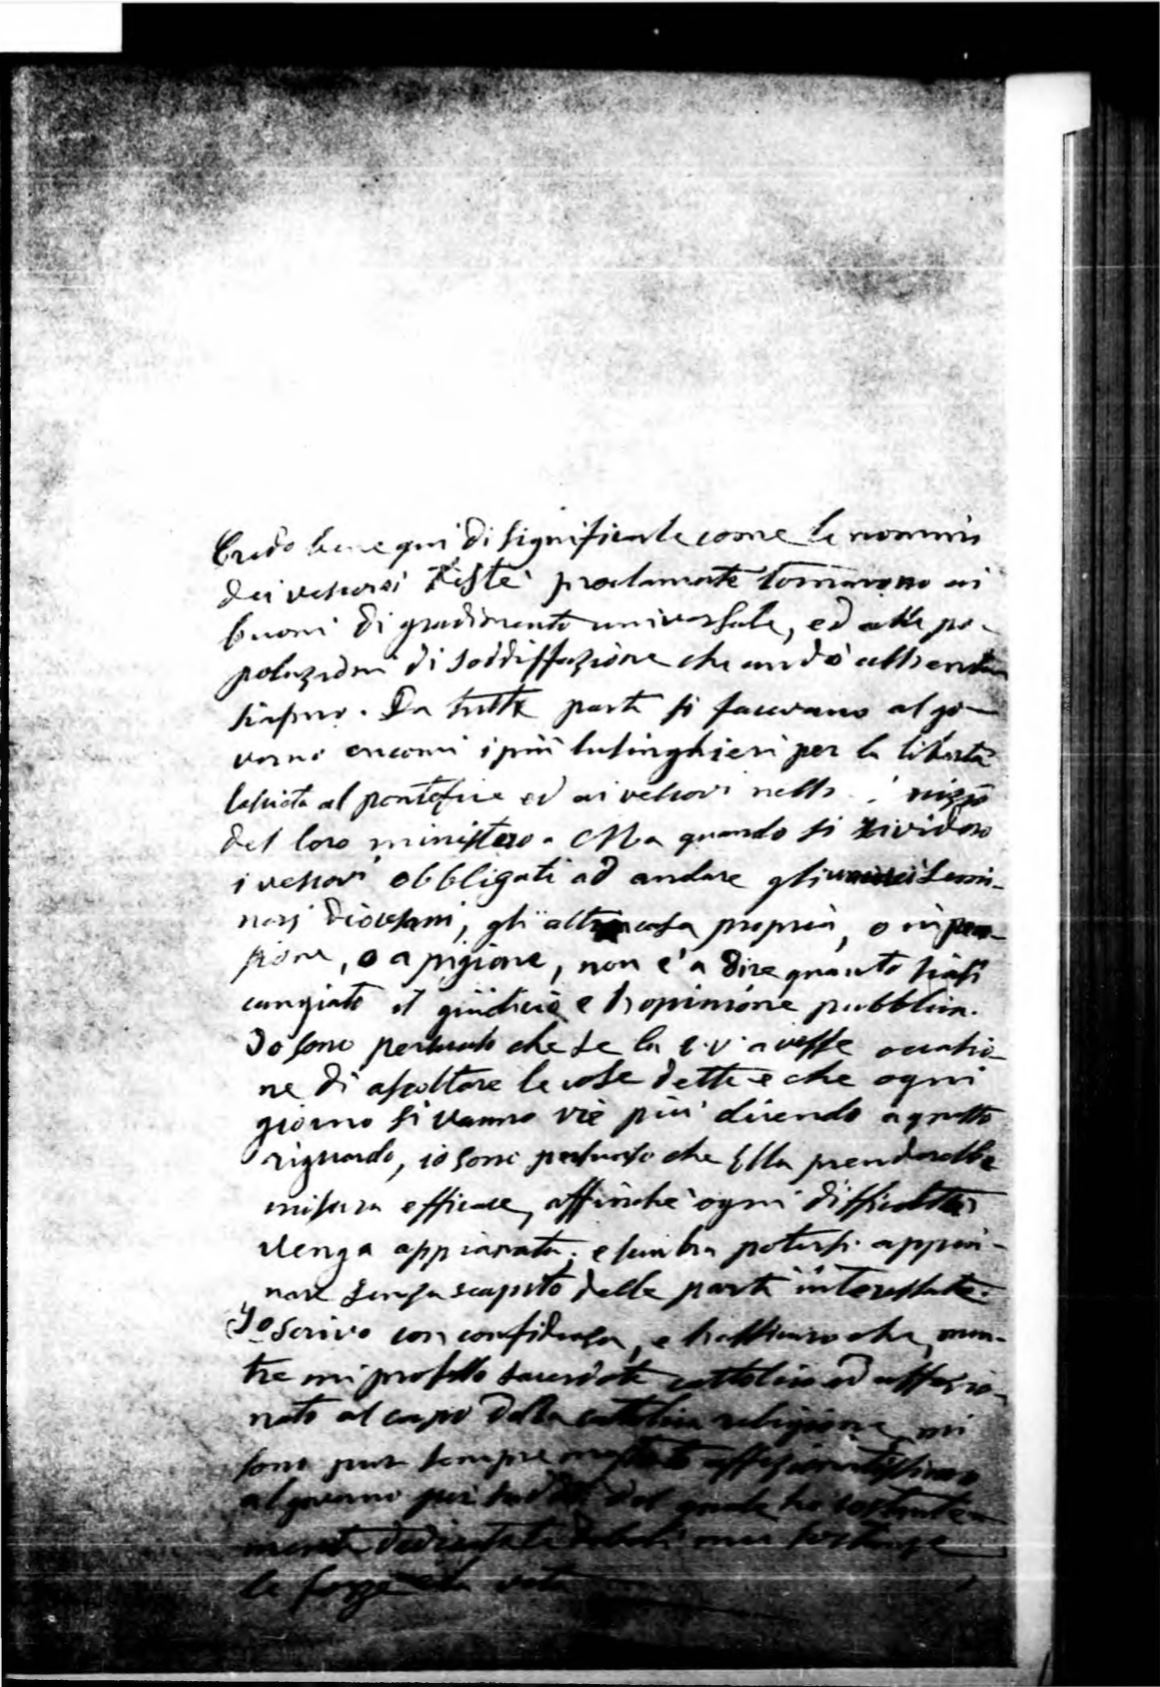 Credo bene qui di significarle come le nomine
dei vescovi testè proclamate tornarono ai
buoni di gradimento universale, ed alle po-
polazioni di soddisfazione che andò all'entu
siasmo. Da tutte parti si facevano al go-
verno encomi i più lusinghieri per la libertà
lasciata al pontefice ed ai vescovi nello
del loro ministero. Ma quando si videro
i vescovi obbligati ad andare gli uni nei Semi-
narj diocesani, gli altri in casa propria, o in pen-
sione, o a pigione, non e' a dire quanto siasi
cangiato il giudicio e l'opinione pubblica.
Io sono persuaso che se la E.V. avesse occasio-
ne di ascoltare le cose dette e che ogni
giorno si vanno vie più dicendo a questo
riguardo, io sono persuaso che Ella prenderebbe
misura efficace, affinchè ogni difficoltà
venga appianata; e sembra potersi appia-
nare senza scapito delle parti interessate.
Io scrivo con confidenza, e l'assicuro che, men-
tre mi professo sacerdote cattolico ed affezio-
nato al capo della cattolica religione, mi
sono pur sempre mostrato affezionatissimo
al governo pei sudditi del quale ho costante-
mente dedicato le deboli mie sostanze
le forze e la vita